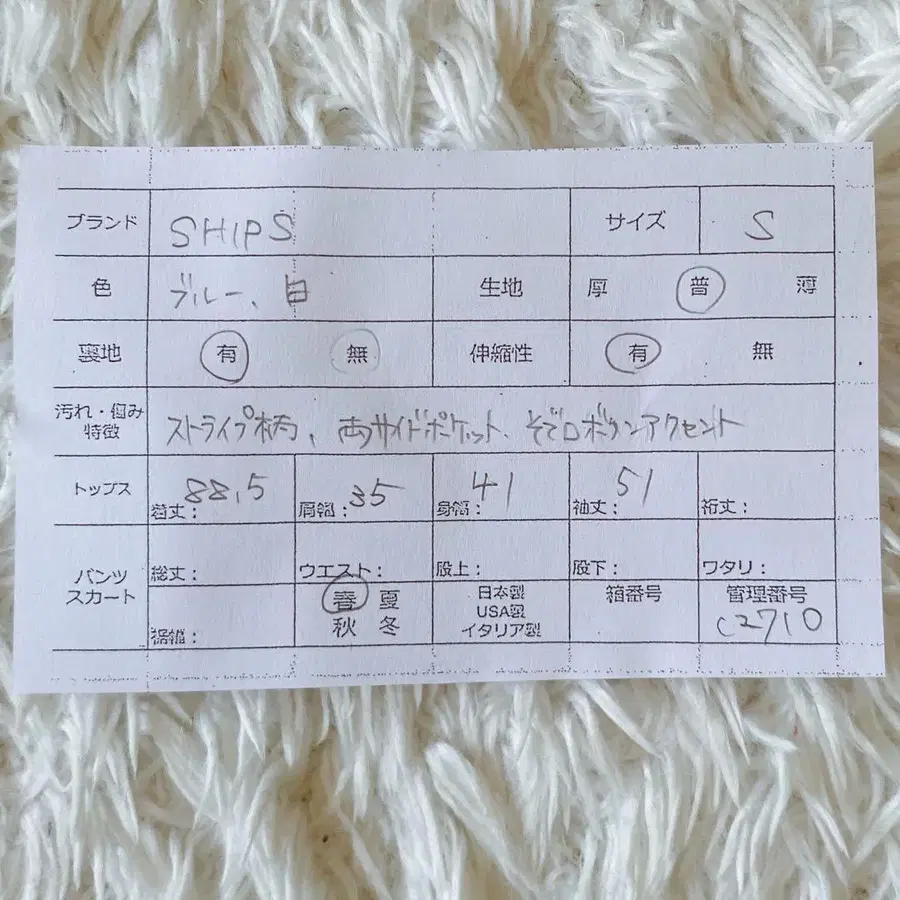 ブランド SHIPS サイズ S
色 ブルー、白 生地 厚 普 薄
裏地 有 無 伸縮性 有 無
汚れ・傷み
特徴 ストライプ柄、両サイドポケット、そで口ボタンアクセント
トップス 着丈: 88.5 肩幅: 35 身幅: 41 袖丈: 51 裄丈:
パンツ
スカート 総丈: ウエスト: 股上: 股下: ワタリ:
裾幅: 春 夏
秋 冬
日本製
USA製
イタリア製
箱番号 管理番号
C2710